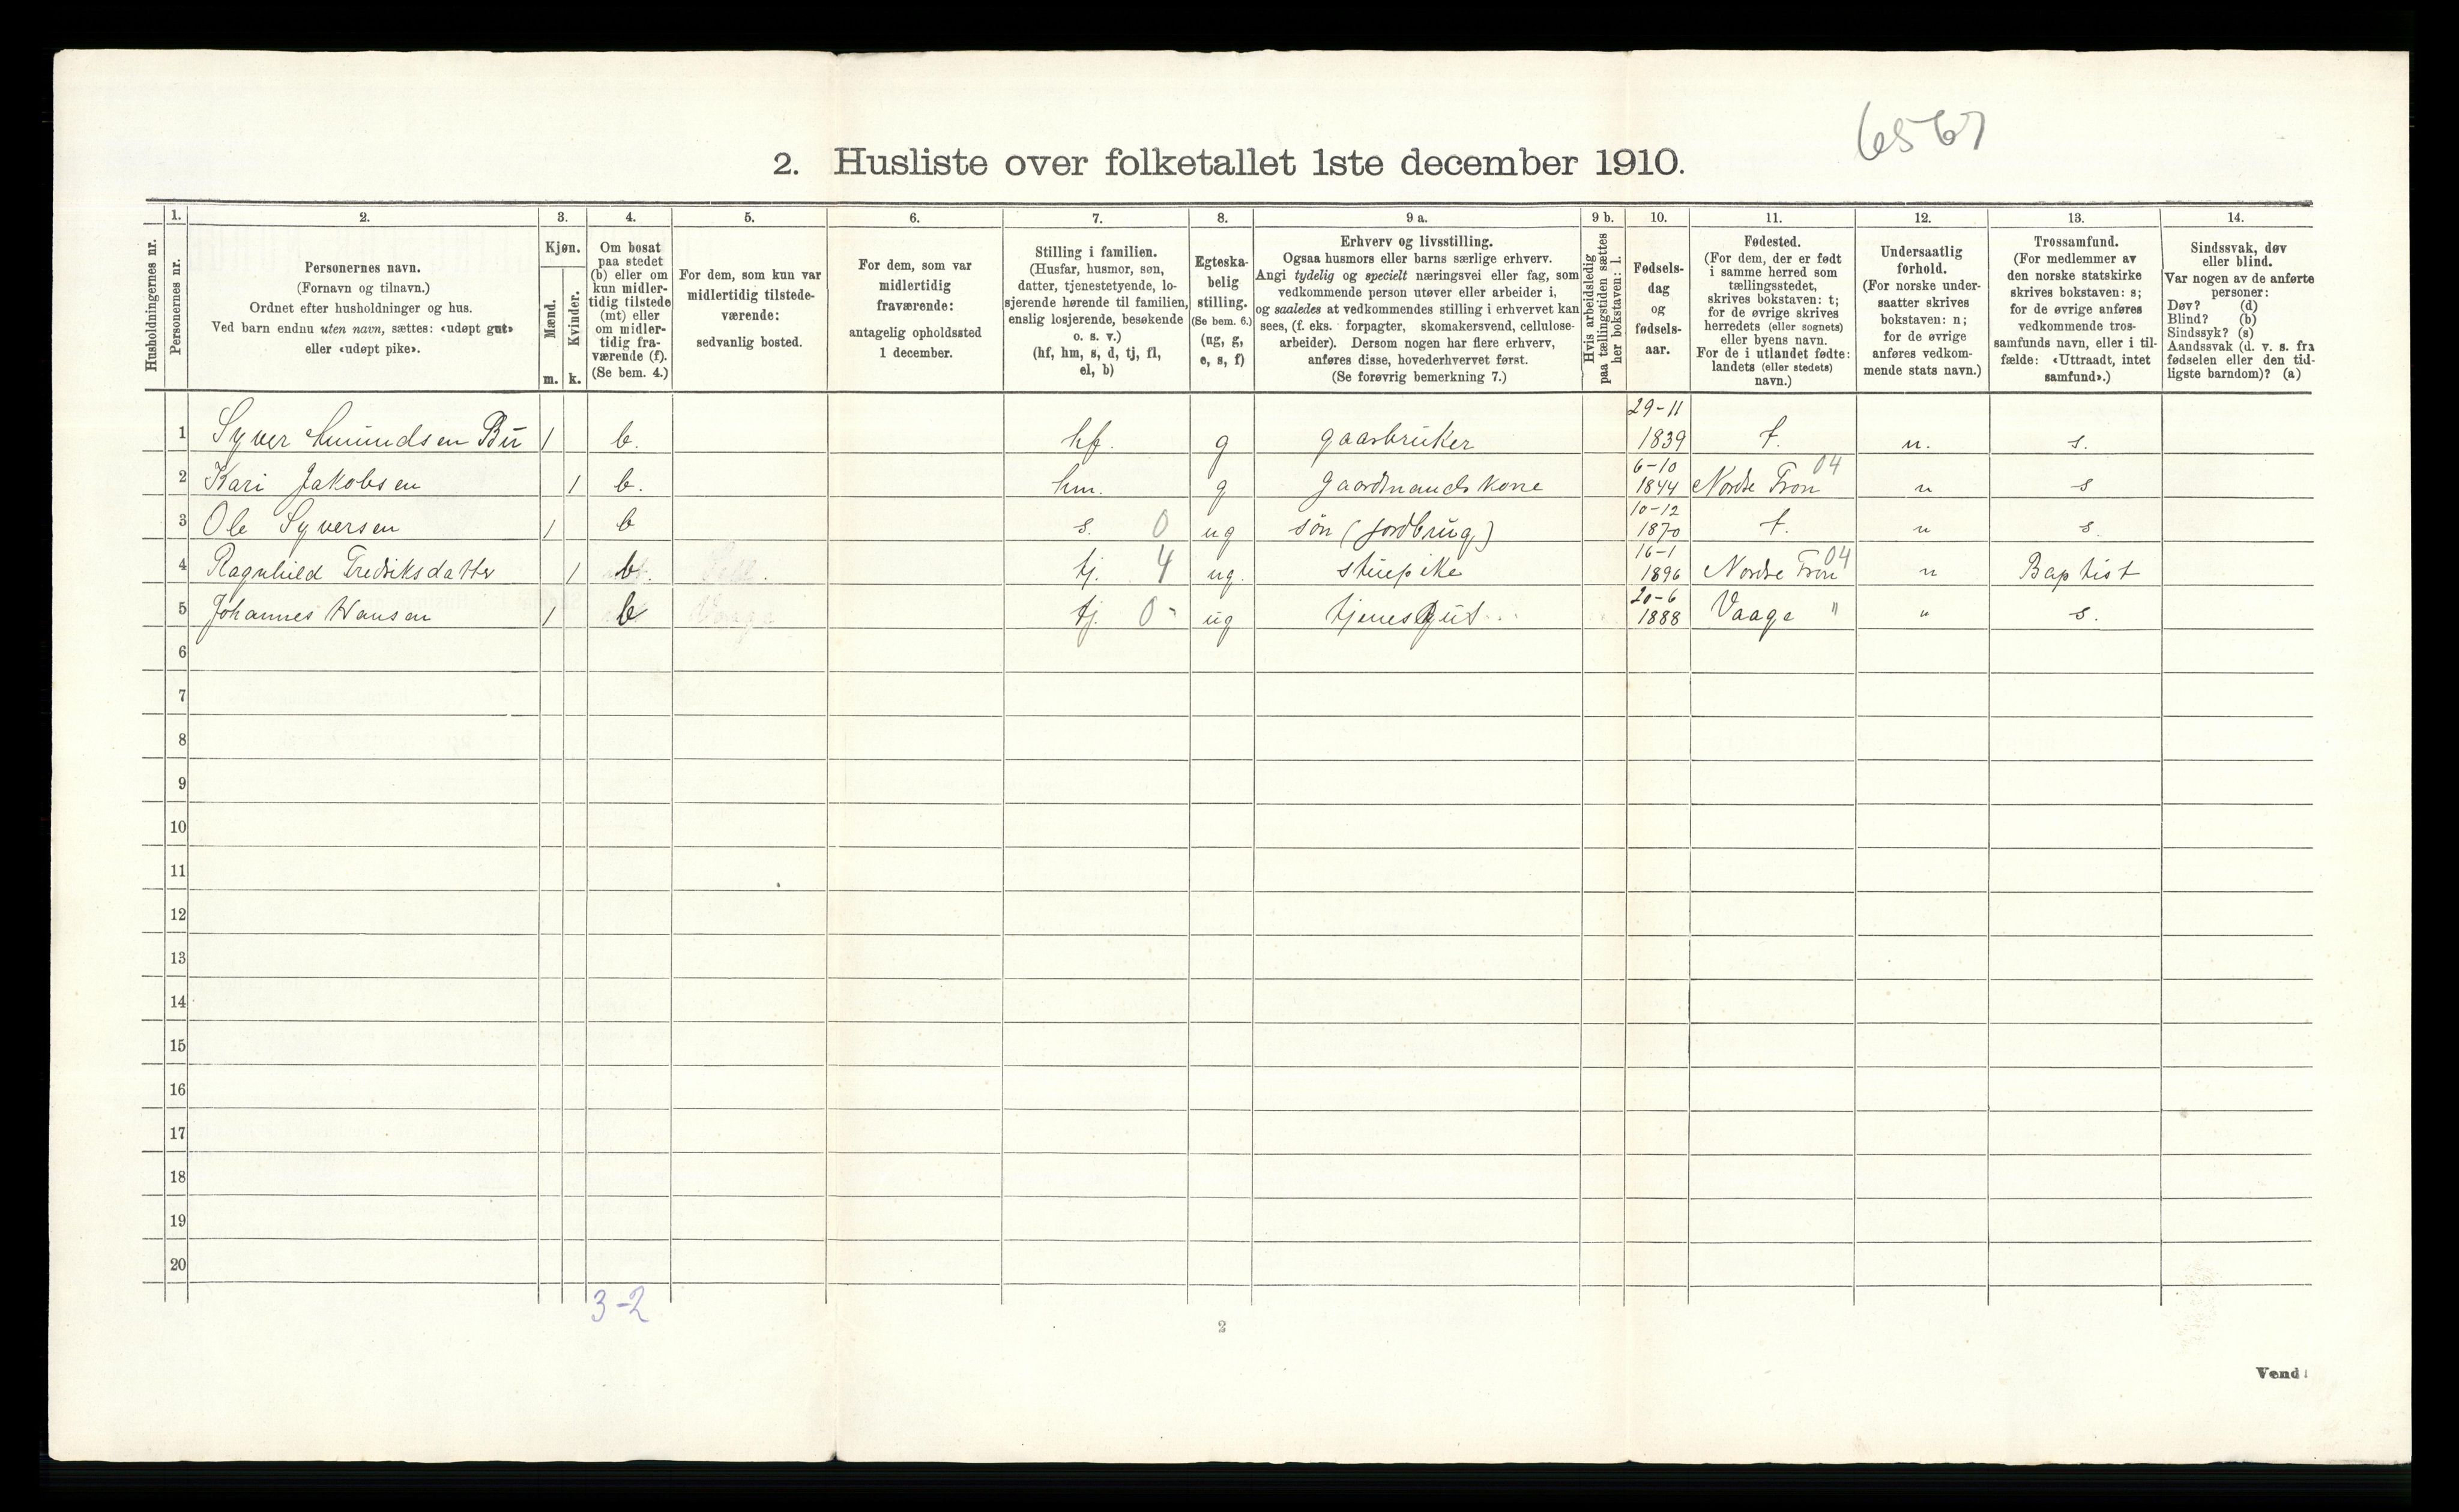 6567
2. Husliste over folketallet 1ste december 1910.
Husholdningernes nr.
1.
Personernes nr.
2.
Personernes navn.
(Fornavn og tilnavn.)
Ordnet efter husholdninger og hus.
Ved barn endnu uten navn, sættes: «udøpt gut»
eller «udøpt pike».
3.
Kjøn.
Mænd.
Kvinder.
m. k.
4.
Om bosat
paa stedet
(b) eller om
kun midler-
tidig tilstede
(mt) eller
om midler-
tidig fra-
værende (f).
(Se bem. 4.)
5.
For dem, som kun var
midlertidig tilstede-
værende:
sedvanlig bosted.
6.
For dem, som var
midlertidig
fraværende:
antagelig opholdssted
1 december.
7.
Stilling i familien.
(Husfar, husmor, søn,
datter, tjenestetyende, lo-
sjerende hørende til familien,
enslig losjerende, besøkende
o. s. v.)
(hf, hm, s, d, tj, fl,
el, b)
8.
Egteska-
belig
stilling.
(Se bem. 6.)
(ug, g,
e, s, f)
9 a.
Erhverv og livsstilling.
Ogsaa husmors eller barns særlige erhverv.
Angi tydelig og specielt næringsvei eller fag, som
vedkommende person utøver eller arbeider i,
og saaledes at vedkommendes stilling i erhvervet kan
sees, (f. eks. forpagter, skomakersvend, cellulose-
arbeider). Dersom nogen har flere erhverv,
anføres disse, hovederhvervet først.
(Se forøvrig bemerkning 7.)
9 b.
Hvis arbeidsledig
paa tællingstiden sættes
her bokstaven: l.
10.
Fødsels-
dag
og
fødsels-
aar.
11.
Fødested.
(For dem, der er født
i samme herred som
tællingsstedet,
skrives bokstaven: t;
for de øvrige skrives
herredets (eller sognets)
eller byens navn.
For de i utlandet fødte:
landets (eller stedets)
navn.)
12.
Undersaatlig
forhold.
(For norske under-
saatter skrives
bokstaven: n;
for de øvrige
anføres vedkom-
mende stats navn.)
13.
Trossamfund.
(For medlemmer av
den norske statskirke
skrives bokstaven: s;
for de øvrige anføres
vedkommende tros-
samfunds navn, eller i til-
fælde: «Uttraadt, intet
samfund».)
14.
Sindssvak, døv
eller blind.
Var nogen av de anførte
personer:
Døv? (d)
Blind? (b)
Sindssyk? (s)
Aandssvak (d. v. s. fra
fødselen eller den tid-
ligste barndom)? (a)
29-11
1 Syver Amundsen Bu 1 b. hf. g gaarbruker 1839 t. n. s.
6-10 04
2 Kari Jakobsen 1 b. hm. g gaardmands kone 1844 Nordre Fron n s
10-12
3 Ole Syversen 1 b s. 0 ug søn (jordbrug) 1870 t. n s.
16-1 04
4 Ragnhild Fredriksdatter 1 b. tj. 4 ug. stuepike 1896 Nordre Fron n Baptist
20-6
5 Johannes Hansen 1 b Vaage tj. 0- ug tjenesgut 1888 Vaage " " s.
6
7
8
9
10
11
12
13
14
15
16
17
18
19
20
3-2
2
Vend!